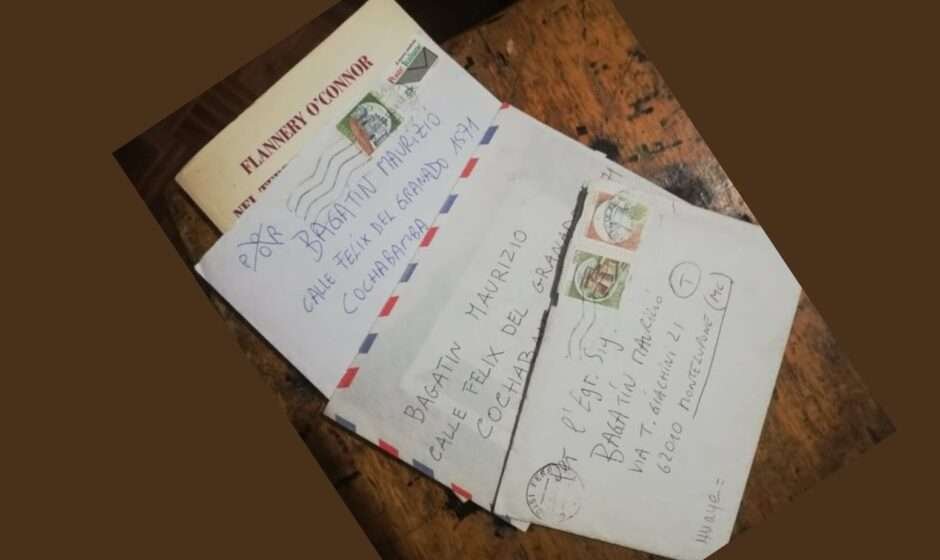 FLANNERY O'CONNOR
NEL
Poste Italiane
BAGATIN MAURIZIO
CALLE FELIX DEL GRANADO 1571
COCHABAMBA
BAGATIN MAURIZIO
CALLE FELIX DEL GRANADO
COCHABA
l'Egr. Sig
BAGATIN MAURIZIO
VIA T. GIACHINI 21
62010 MONTELUPONE (MC)
T